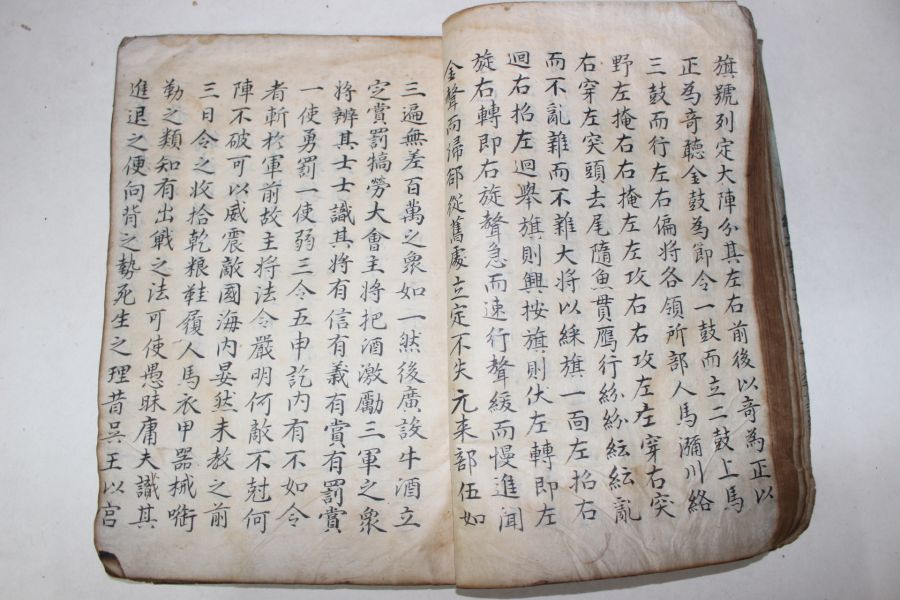 旗號列定大陣分其左右前後以奇為正以
正為奇聽金鼓為節令一鼓而立二鼓上馬
三鼓而行左右偏將各領所部人馬瀰川絡
野左掩右右掩左左攻右右攻左左穿右突
右穿左突頭去尾隨魚貫鴈行紛紛紜紜亂
而不亂雜而不雜大將以綵旗一面左招右
迴右招左迴舉旗則興按旗則伏左轉即左
旋右轉即右旋聲急而速行聲緩而慢進聞
金聲而歸部從舊處立定不失元来部伍如
三遍無差百萬之衆如一然後廣設牛酒立
定賞罰犒勞大會主將把酒激勵三軍之衆
將辨其士士識其將有信有義有賞有罰賞
一使勇罰一使弱三令五申訖內有不如令
者斬於軍前故主將法令嚴明何敵不尅何
陣不破可以威震敵國海內晏然未教之前
三日令之收拾乾粮鞋履人馬衣甲器械啣
勒之類知有出戰之法可使愚昧庸夫識其
進退之便向背之勢死生之理昔吳王以宮